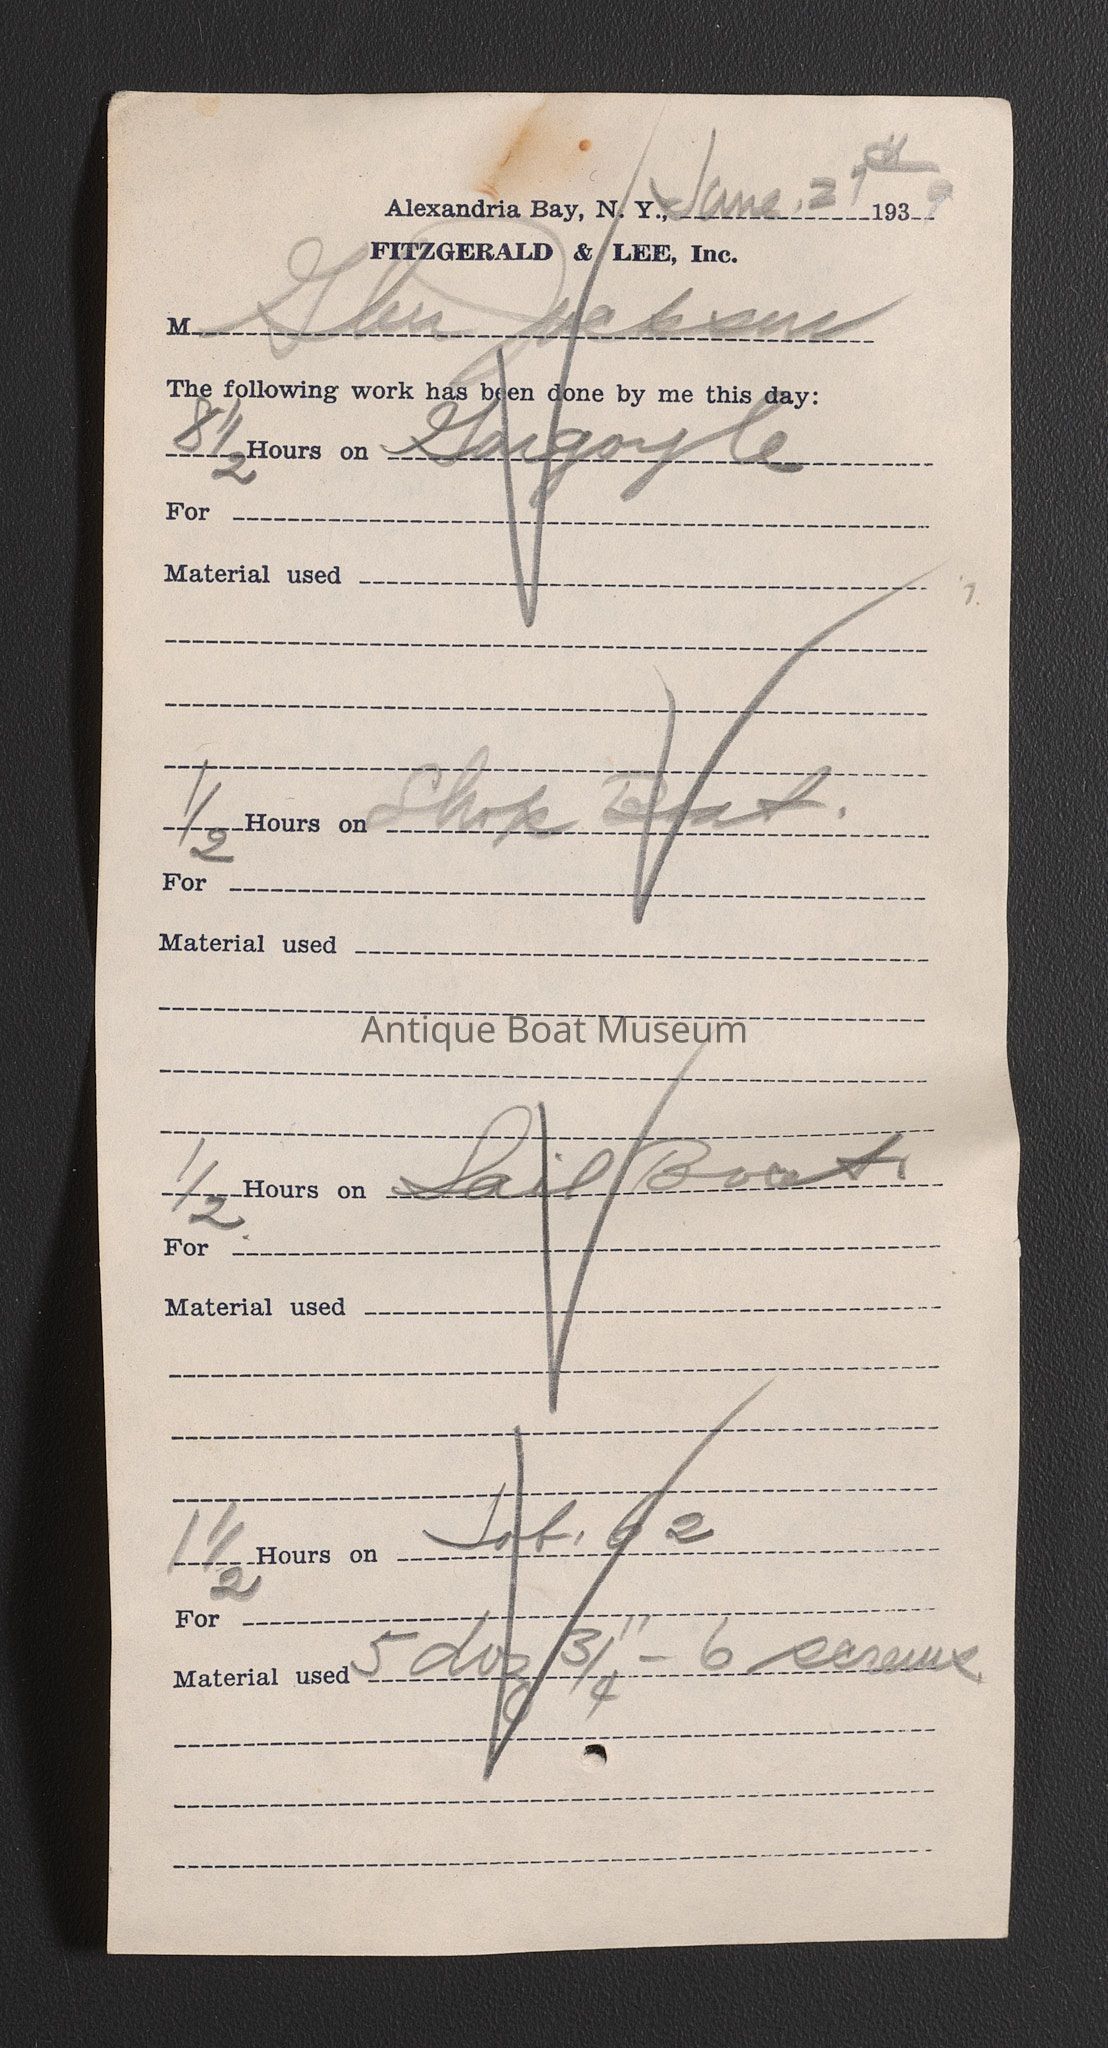 Alexandria Bay, N. Y., June. 27th 1939
FITZGERALD & LEE, Inc.
M Glen Jackson
The following work has been done by me this day:
8 1/2 Hours on Gargoyle
For
Material used
1/2 Hours on Shop Boat.
For
Material used
Antique Boat Museum
1/2 Hours on Sail Boat.
For
Material used
1 1/2 Hours on Job. 62
For
Material used 5 doz 3/4" - 6 screws